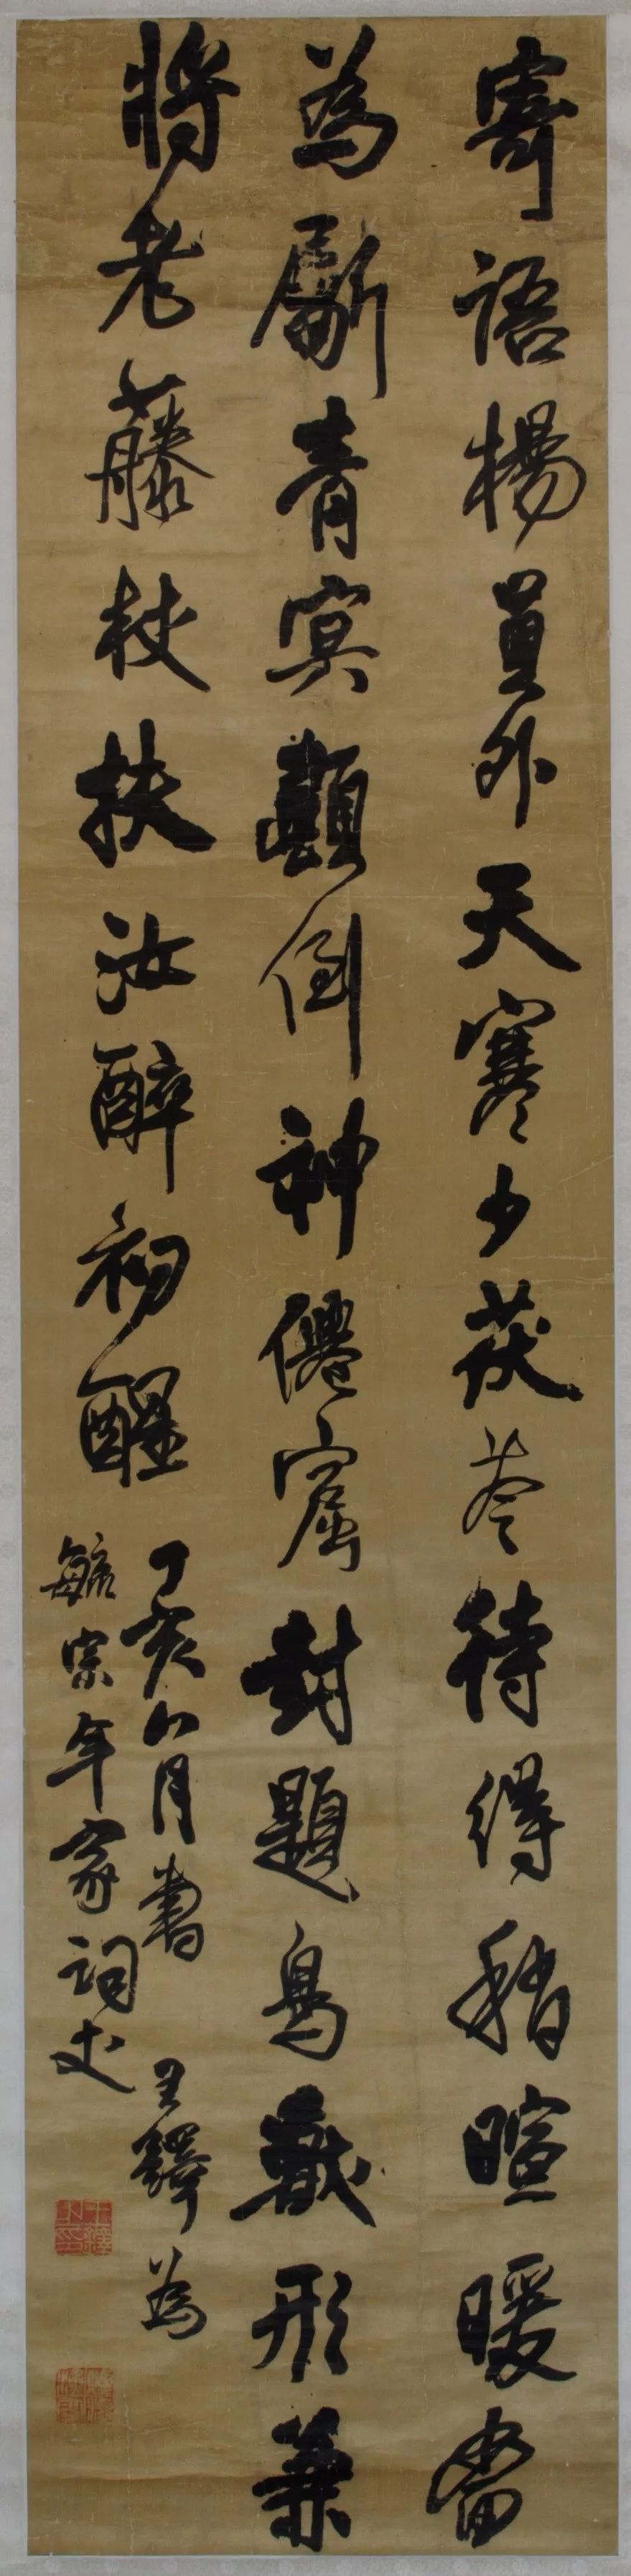 寄語楊員外天寒少茯苓待得稍暄暖當
為斸青冥顛倒神僊窟封題鳥獸形兼
將老藤杖扶汝醉初醒
丁亥八月書 王鐸為
毓宗年家詞丈
王鐸之印